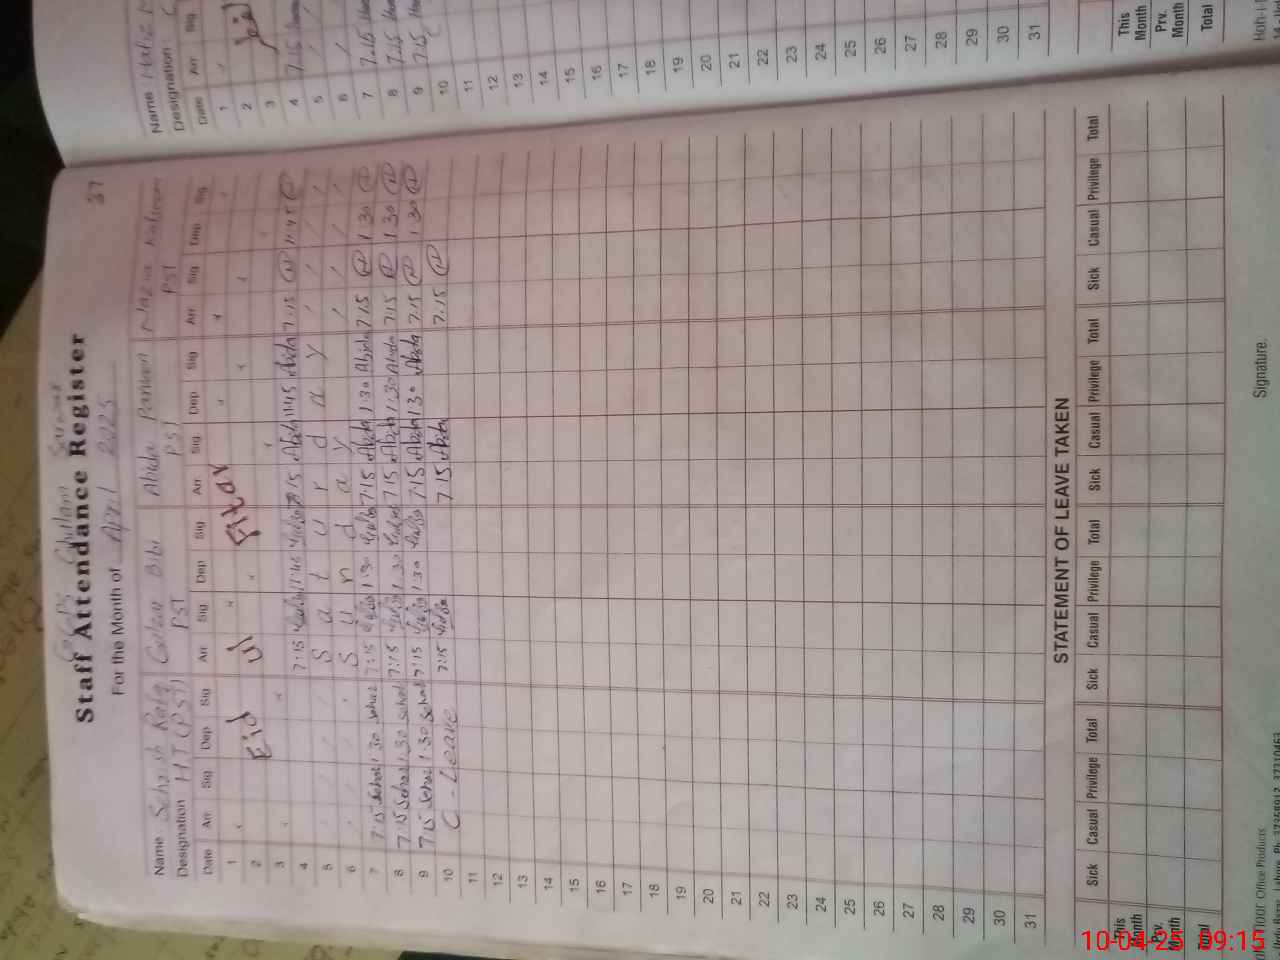 37
GGPS Ghulam Sarwar
Staff Attendance Register
For the Month of April 2025
Name Sehrish Rafiq Gulan Bibi Abida Parveen Nazia Kalsoom
Designation HT (PST) PST PST PST
Date Arr Sig Dep Sig Arr Sig Dep Sig Arr Sig Dep Sig Arr Sig Dep Sig
1
2 Eid ul Fitar
3
4 7:15 11:45 7:15 Abida 11:45 Abida 7:15 11:45
5 S a t u r d a y
6 S u n d a y
7 7:15 Sehar 1:30 Sehar 7:15 1:30 7:15 Abida 1:30 Abida 7:15 1:30
8 7:15 Sehar 1:30 Sehar 7:15 1:30 7:15 Abida 1:30 Abida 7:15 1:30
9 7:15 Sehar 1:30 Sehar 7:15 1:30 7:15 Abida 1:30 Abida 7:15 1:30
10 C - Leave 7:15 7:15 Abida 7:15
11
12
13
14
15
16
17
18
19
20
21
22
23
24
25
26
27
28
29
30
31
STATEMENT OF LEAVE TAKEN
Sick Casual Privilege Total Sick Casual Privilege Total Sick Casual Privilege Total Sick Casual Privilege Total
This Month
Prv. Month
Total
Signature.
Office Products
Name Hafiz
Designation : C
Date Arr Sig
1
2
3
4 7:15
5
6
7 7:15
8 7:15
9 7:15
10
11
12
13
14
15
16
17
18
19
20
21
22
23
24
25
26
27
28
29
30
31
This Month
Prv. Month
Total
10-04-25 09:15